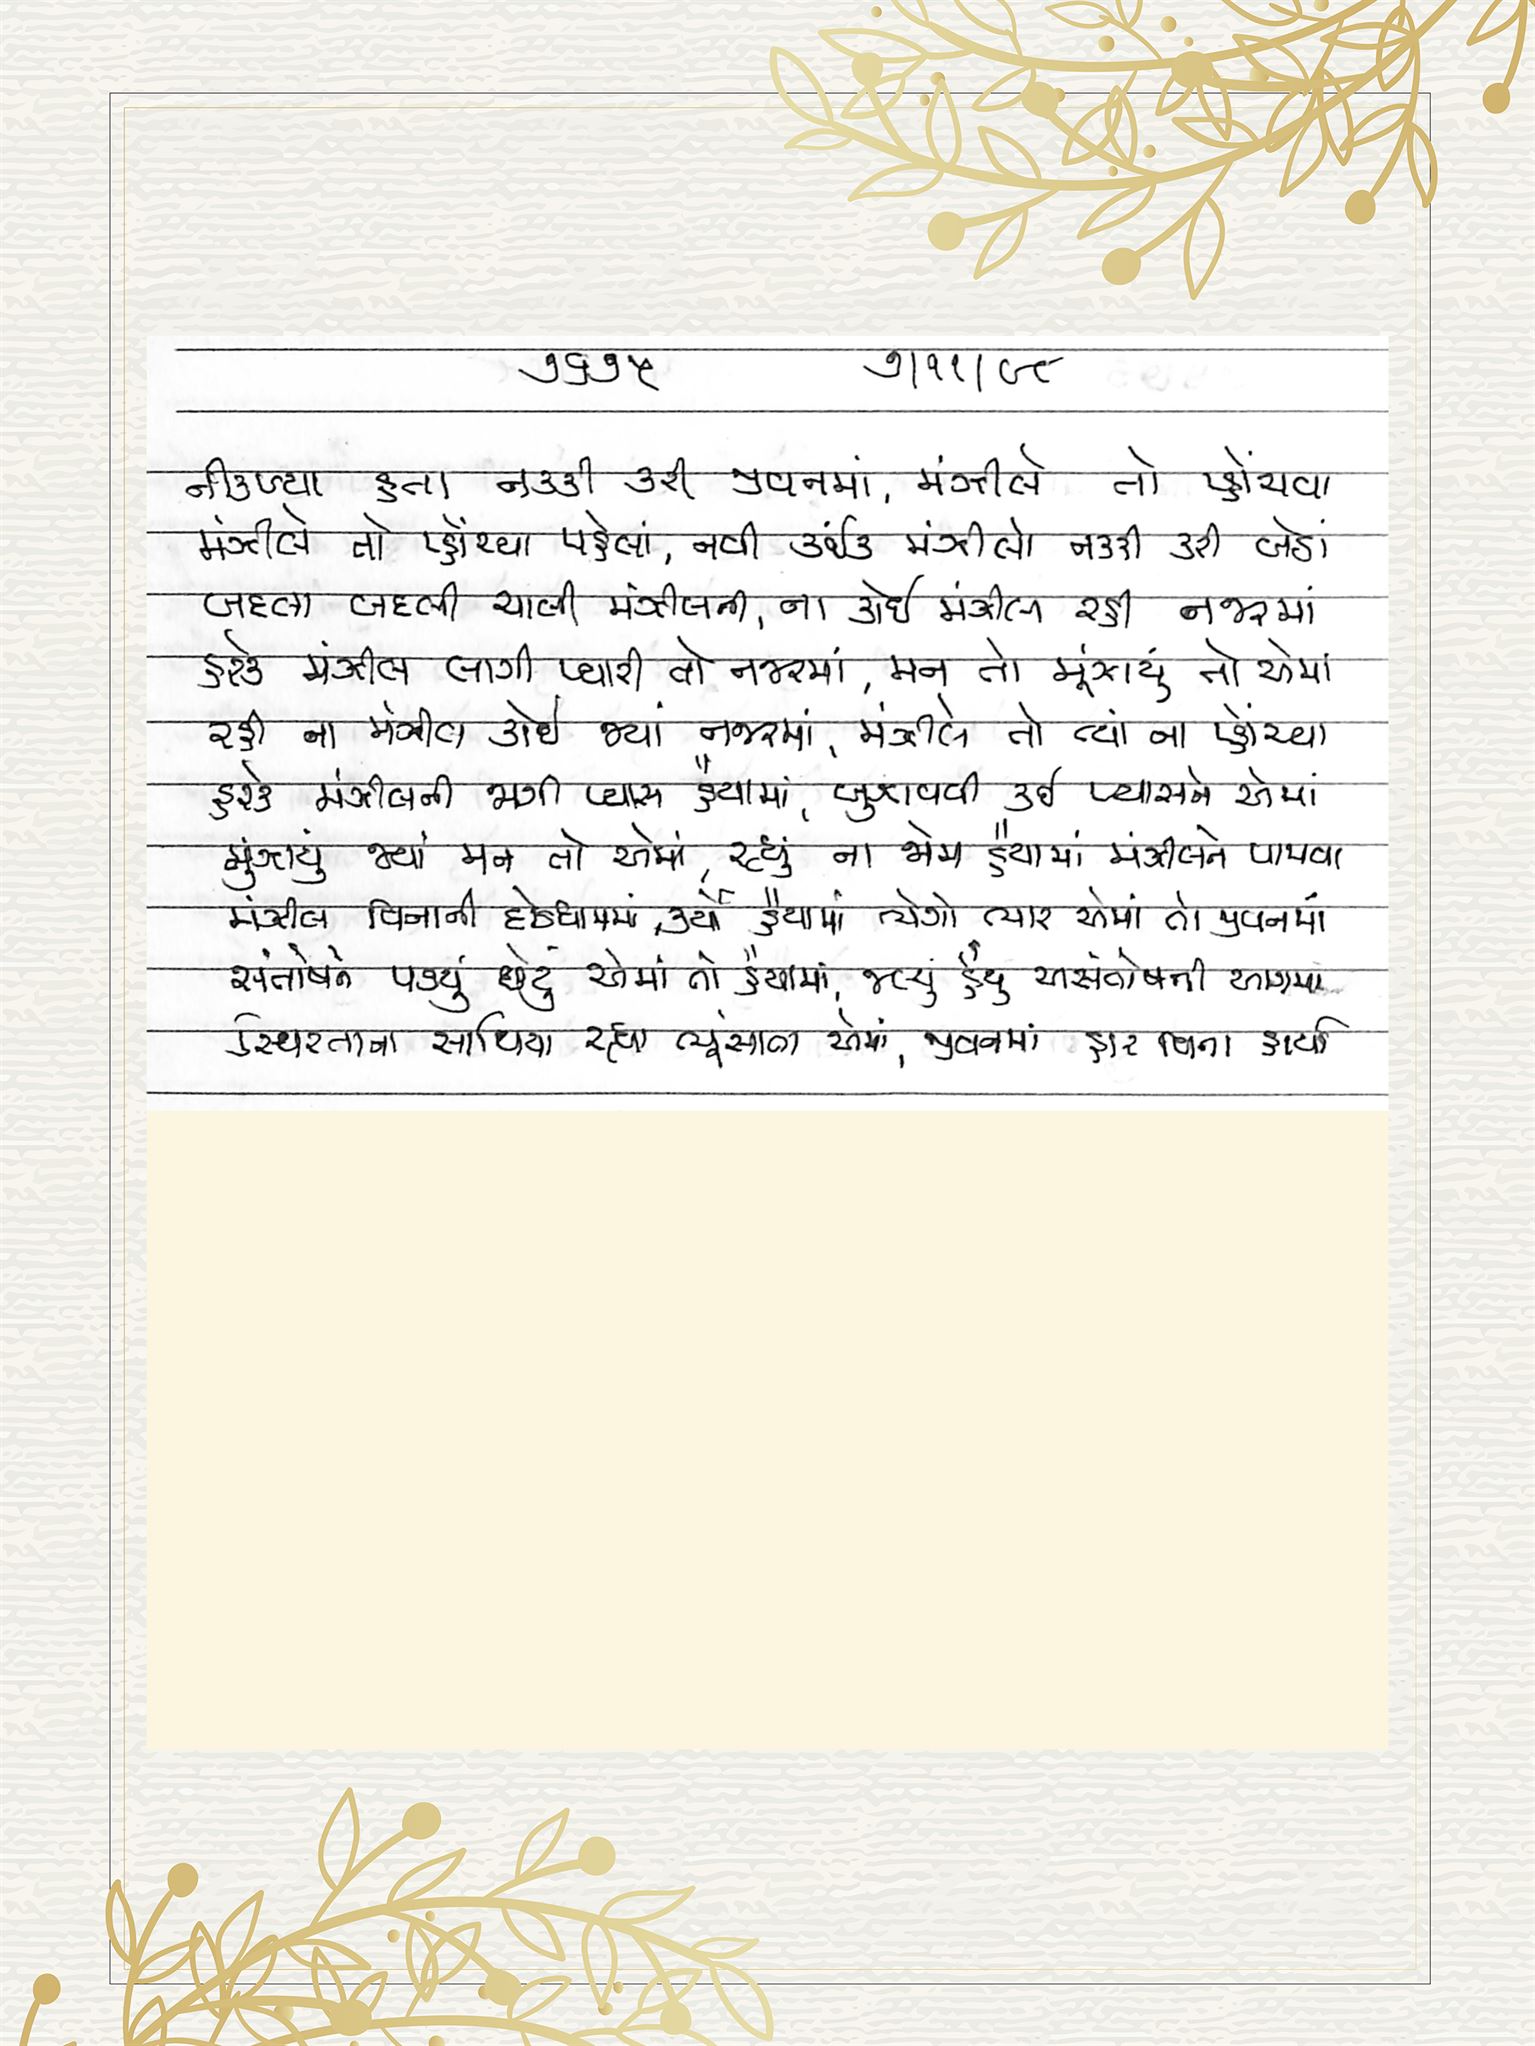 ૭૬૭૫ ૭/૧૧/૯૮
નીકળ્યા હતા નક્કી કરી જીવનમાં, મંઝીલે તો પ્હોંચવા
મંઝીલે તો પ્હોંચ્યા પહેલાં, નવી કંઈક મંઝીલો નક્કી કરી બેઠાં
બદલા બદલી ચાલી મંઝીલની, ના કોઈ મંઝીલ રહી નજરમાં
હરેક મંઝીલ લાગી પ્યારી તો નજરમાં, મન તો મૂંઝાયું તો એમાં
રહી ના મંઝીલ કોઈ જ્યાં નજરમાં, મંઝીલે તો ત્યાં ના પ્હોંચ્યા
હરેક મંઝીલની જાગી પ્યાસ હૈયામાં, બુઝાવવી કઈ પ્યાસને એમાં
મુંઝાયું જ્યાં મન તો એમાં, રહ્યું ના જોમ હૈયામાં મંઝીલને પામવા
મંઝીલ વિનાની દોડધામમાં, કર્યો હૈયામાં ત્યેગો ત્યાર એમાં તો જીવનમાં
સંતોષને પડયું છેટું એમાં તો હૈયામાં, જલ્યું હૈયું અસંતોષની આગમાં
સ્થિરતાના સાથિયા રહ્યા ભૂંસાતા એમાં, જીવનમાં હાર વિના હાર્યા